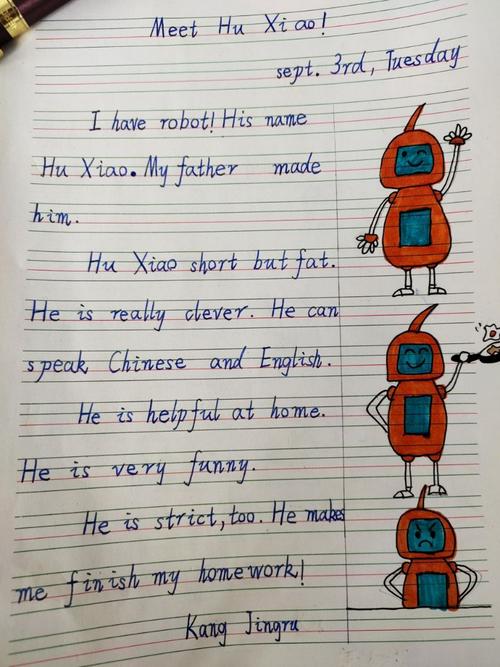 Meet Hu Xiao!
sept. 3rd, Tuesday
I have robot! His name
Hu Xiao. My father made
him.
Hu Xiao short but fat.
He is really clever. He can
speak Chinese and English.
He is helpful at home.
He is very funny.
He is strict, too. He makes
me finish my homework!
Kang Jingru